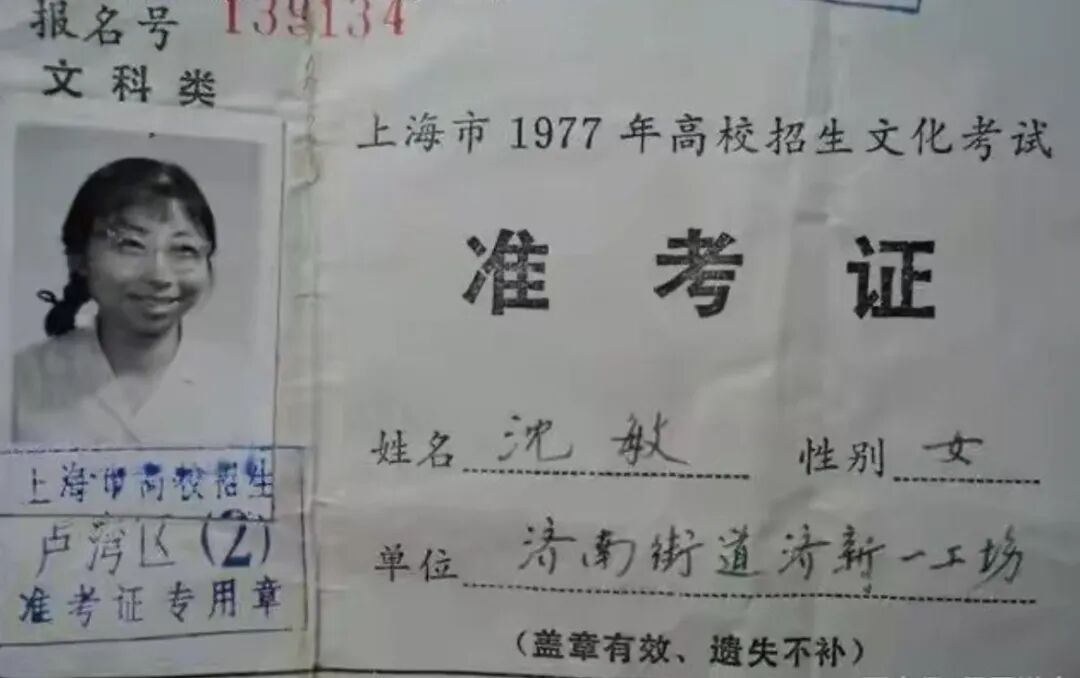 报名号 139134
文科类
上海市1977年高校招生文化考试
准考证
姓名 沈敏 性别 女
单位 济南街道济新一工场
(盖章有效、遗失不补)
上海市高校招生
卢湾区(2)
准考证专用章